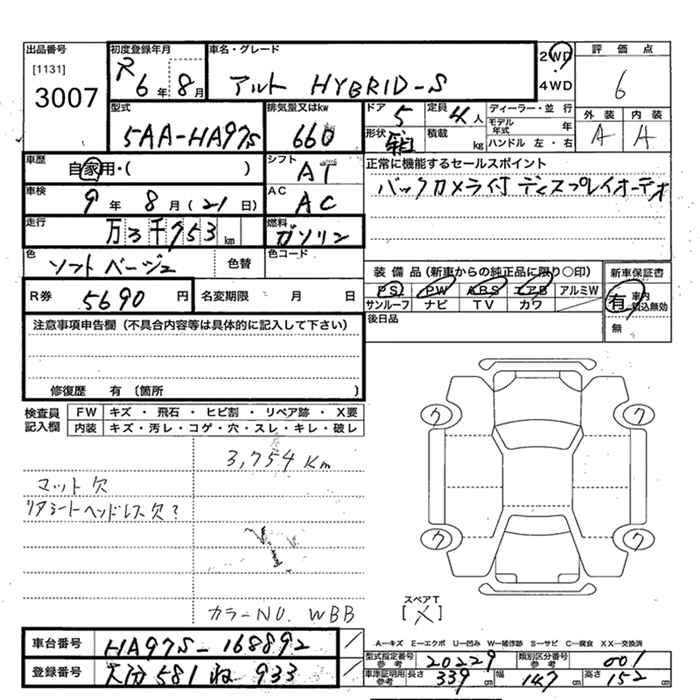 出品番号
[1131]
3007
初度登録年月
R 6年 8月
車名・グレード
アルト HYBRID-S
2WD
4WD
評価点
6
型式
5AA-HA97S
排気量又はkw
660
ドア 5
定員 4人
形状 箱
積載 kg
ディーラー・並 行
モデル年式 年
ハンドル 左・右
外装 内装
A A
車歴
自家用・( )
シフト
AT
正常に機能するセールスポイント
バックカメラ付 ディスプレイオーディオ
車検
9年 8月(21日)
AC
AC
走行
万3千753km
燃料
ガソリン
色
ソフトベージュ
色替
色コード
装備品(新車からの純正品に限り○印)
新車保証書
PS PW ABS エアB アルミW
サンルーフ ナビ TV カワ
有 車内積込無効
無
R券 5690円
名変期限 月 日
後日品
注意事項申告欄(不具合内容等は具体的に記入して下さい)
修復歴 有〔箇所 〕
検査員記入欄
FW キズ・飛石・ヒビ割・リペア跡・X要
内装 キズ・汚レ・コゲ・穴・スレ・キレ・破レ
3,754 Km
マット欠
リアシートヘッドレス欠?
カラーNO. WBB
ワ ワ
ワ ワ
スペアT
[X]
A―キズ E―エクボ U―凹み W―補修跡 S―サビ C―腐食 XX―交換済
車台番号
HA97S-168892
登録番号
大分 581 ね 933
型式指定番号 参考 20229
類別区分番号 参考 001
車庫証明用 参考 長さ 339cm 幅 147cm 高さ 152cm